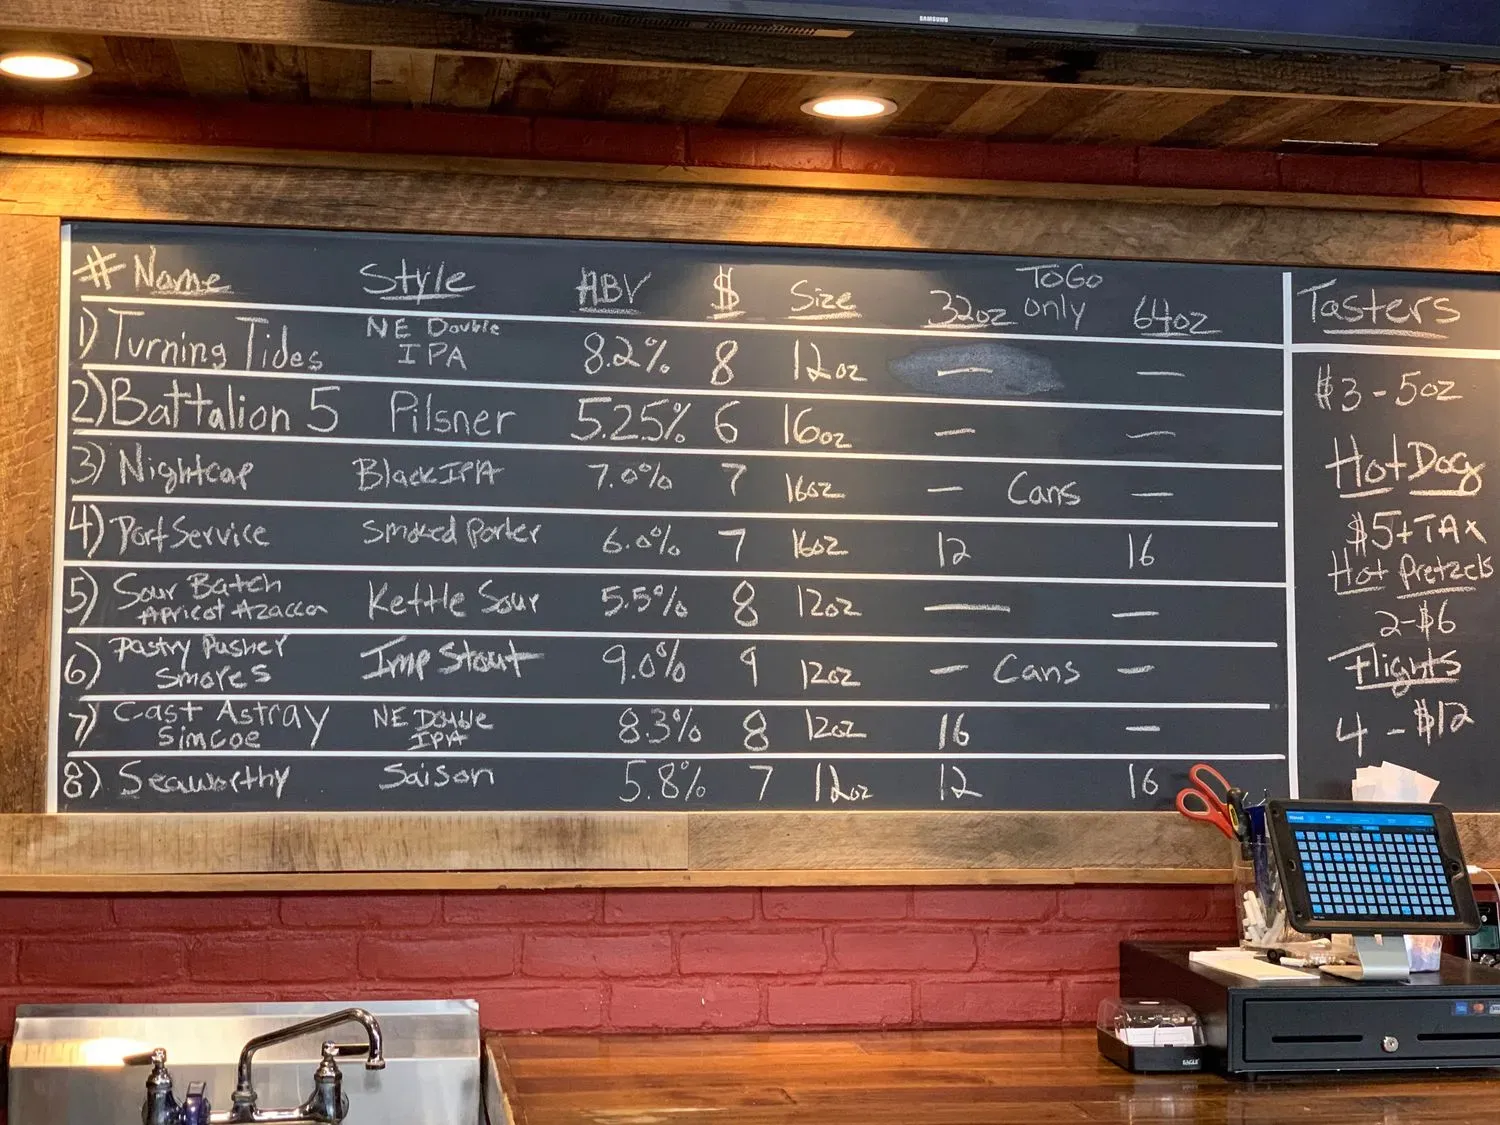 SAMSUNG
# Name Style ABV $ Size 32oz ToGo only 64oz
1) Turning Tides NE Double IPA 8.2% 8 12oz — —
2) Battalion 5 Pilsner 5.25% 6 16oz — —
3) Nightcap Black IPA 7.0% 7 16oz — Cans —
4) Port Service Smoked Porter 6.0% 7 16oz 12 16
5) Sour Batch Apricot Azacca Kettle Sour 5.5% 8 12oz — —
6) Pastry Pusher Smores Imp Stout 9.0% 9 12oz — Cans —
7) Cast Astray Simcoe NE Double IPA 8.3% 8 12oz 16 —
8) Seaworthy Saison 5.8% 7 12oz 12 16
Tasters
$3 - 5oz
Hot Dog
$5 + TAX
Hot Pretzels
2 - $6
Flights
4 - $12
EAGLE